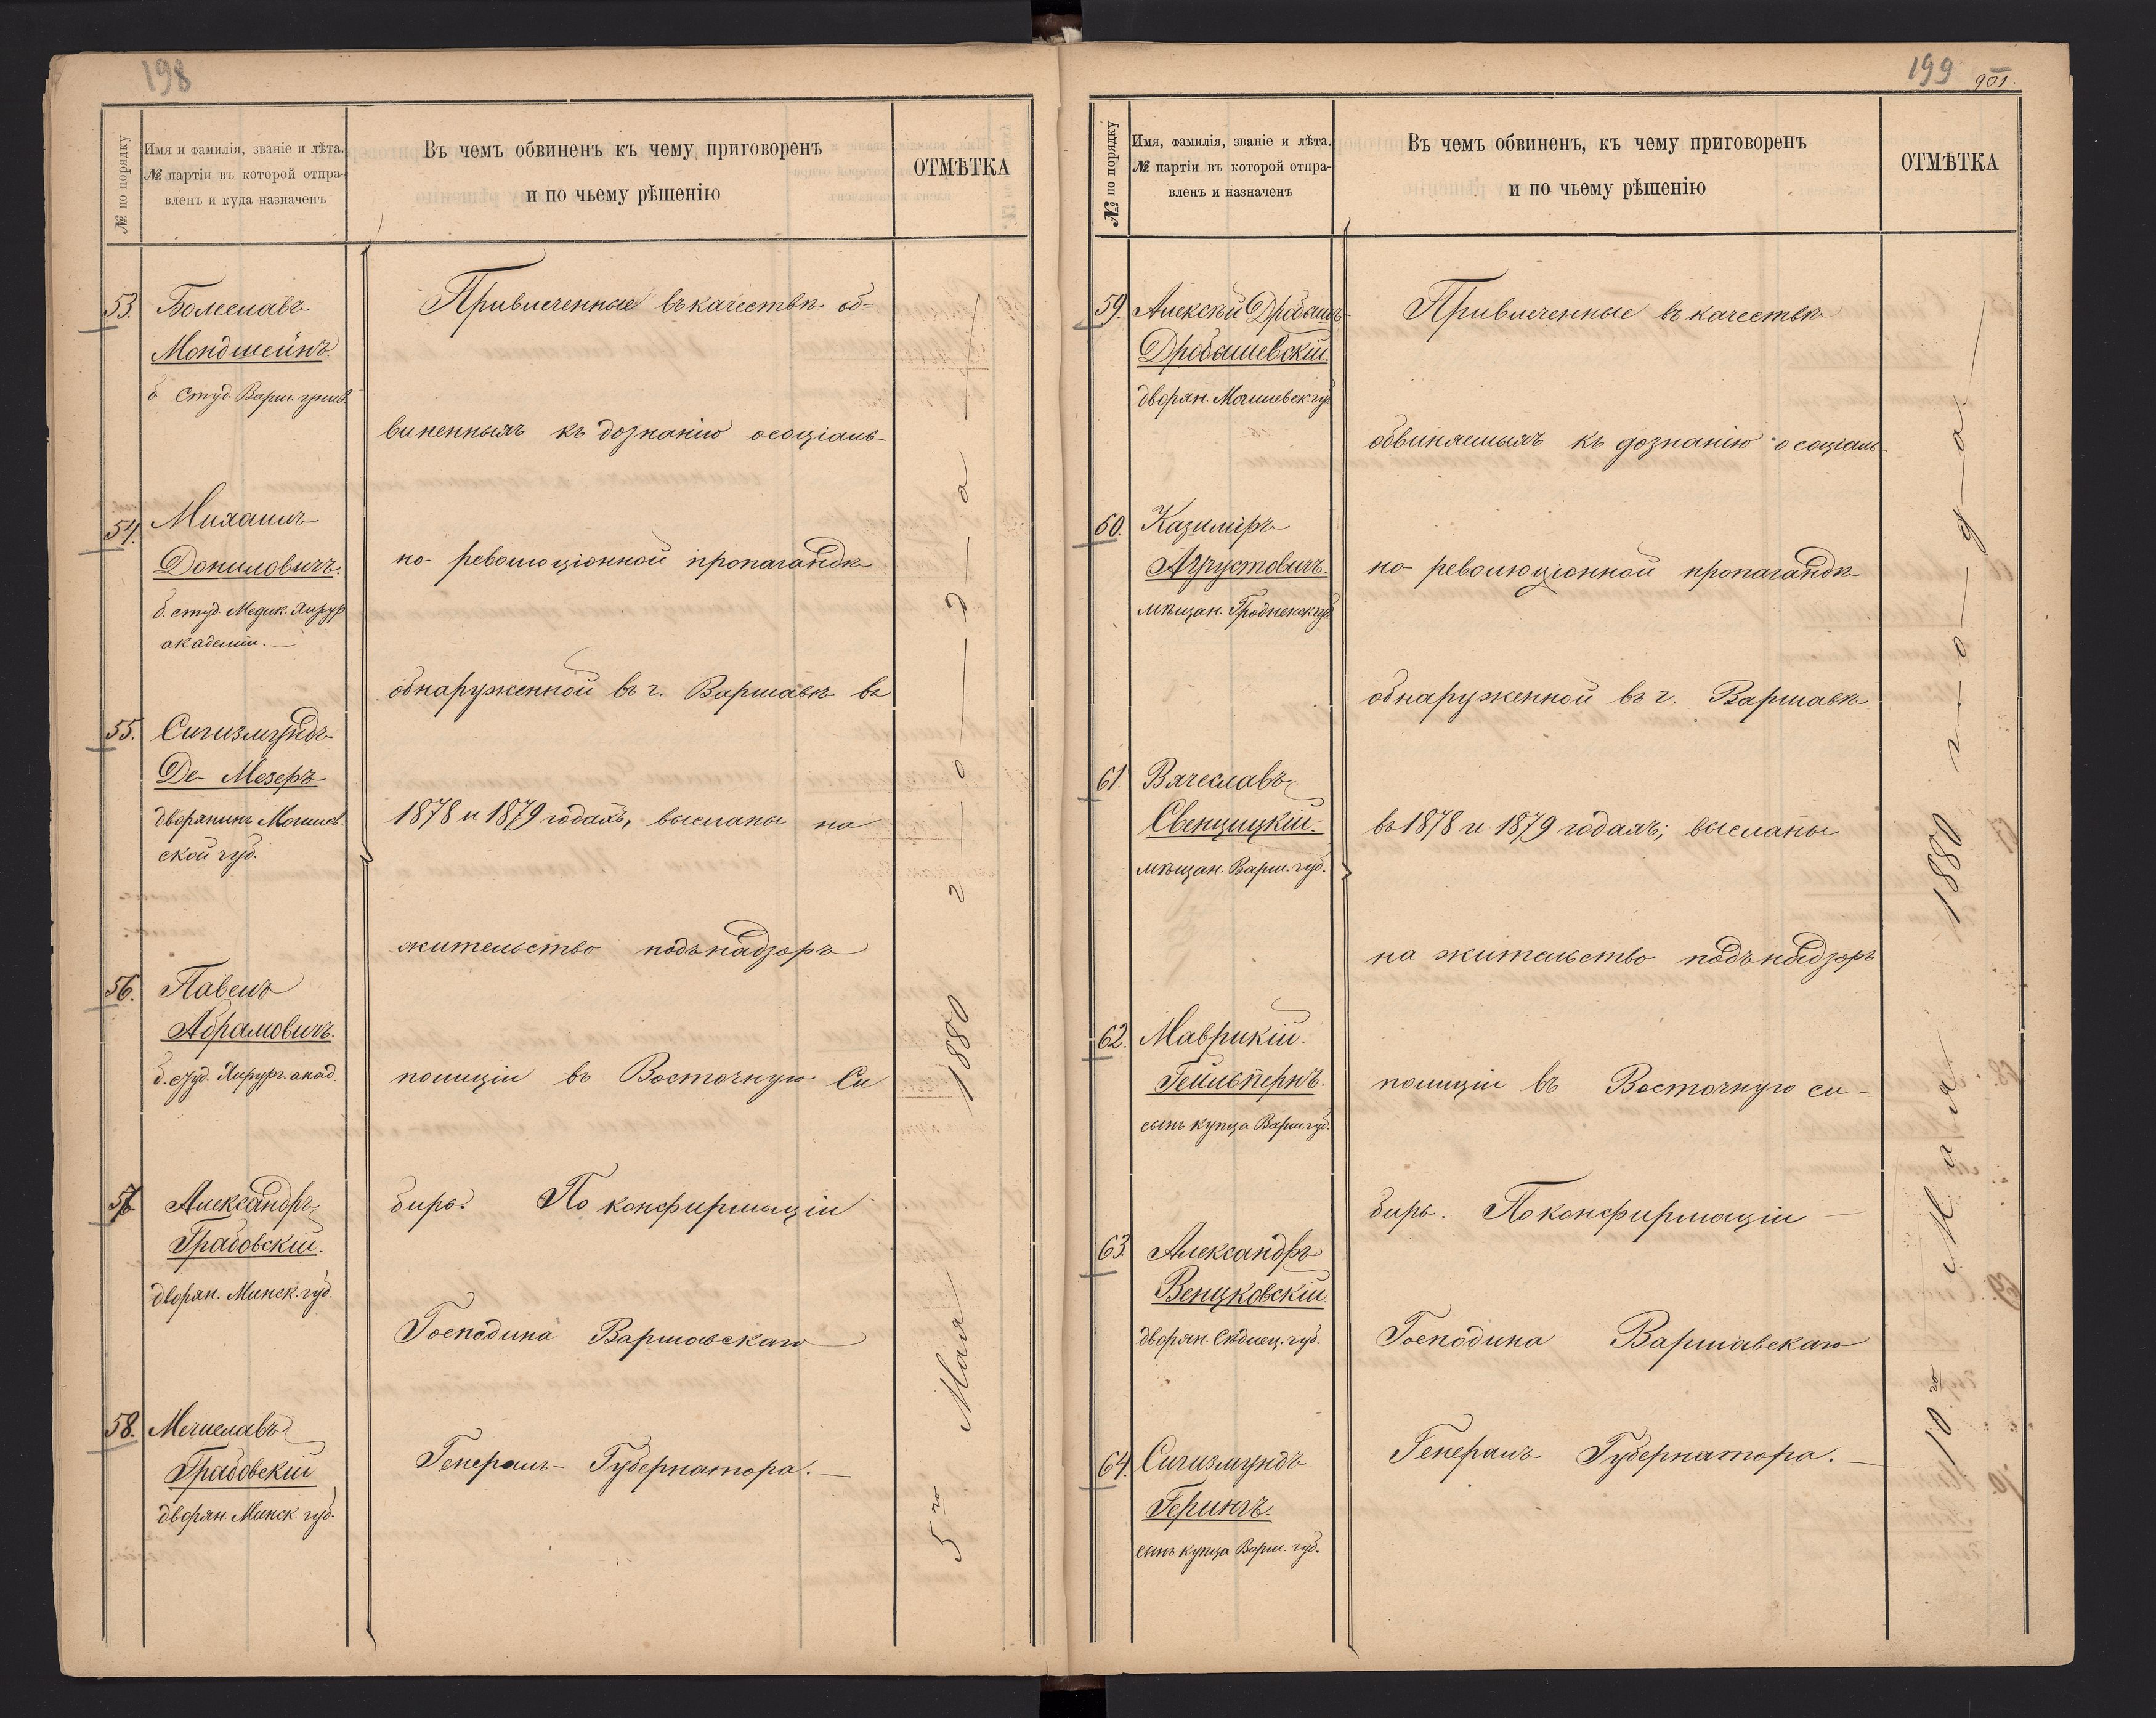 198
№ по порядку
Имя и фамилія, званіе и лѣта.
№ партіи въ которой отпра-
вленъ и куда назначенъ
Въ чемъ обвиненъ къ чему приговоренъ
и по чьему рѣшенію
ОТМѢТКА
53. Болеславъ
Мондшейнъ.
б. студ. Варш. унив.
54. Михаилъ
Данiловичъ.
б. студ. Медик. Хирур
академiи. —
55. Сигизмундъ
Де-Мезеръ
дворянинъ Могилев-
ской губ.
56. Павелъ
Абрамовичъ.
б. студ. Хирург. акад.
57. Александръ
Грабовскій.
дворян. Минск. губ.
58. Мечиславъ
Грабовскій
дворян. Минск. губ.
Привлеченные въ качествѣ об=
виненныхъ къ дознанію о соціаль-
но-революціонной пропагандѣ
обнаруженной въ г. Варшавѣ въ
1878 и 1879 годахъ, высланы на
жительство подъ надзоръ
полиціи въ Восточную Си
бирь. По конфирмаціи
Господина Варшавскаго
Генералъ-Губернатора. —
5го Мая 1880 г—о—д—а
199
901.
№ по порядку
Имя, фамилія, званіе и лѣта.
№ партіи въ которой отпра-
вленъ и назначенъ
Въ чемъ обвиненъ, къ чему приговоренъ
и по чьему рѣшенію
ОТМѢТКА
59. Алексѣй Дробышъ-
Дробышевскій.
дворян. Могилевск. губ
60. Казиміръ
Аугустовичъ.
мѣщан. Гродненск. губ
61. Вячеславъ
Свенцицкій.
мѣщан. Варш. губ.
62. Маврикій.
Гейльпернъ.
сынъ купца Варш. губ.
63. Александръ
Венцковскій.
дворян. Сѣдлец. губ.
64. Сигизмундъ
Герингъ.
сынъ купца Варш. губ.
Привлеченные въ качествѣ
обвиняемыхъ къ дознанію о соціаль-
но-революціонной пропагандѣ
обнаруженной въ г. Варшавѣ
въ 1878 и 1879 годахъ; высланы
на жительство подъ надзоръ
полиціи въ Восточную си-
бирь. По конфирмаціи —
Господина Варшавскаго
Генералъ Губернатора. —
10го Мая 1880 г—о—д—а—